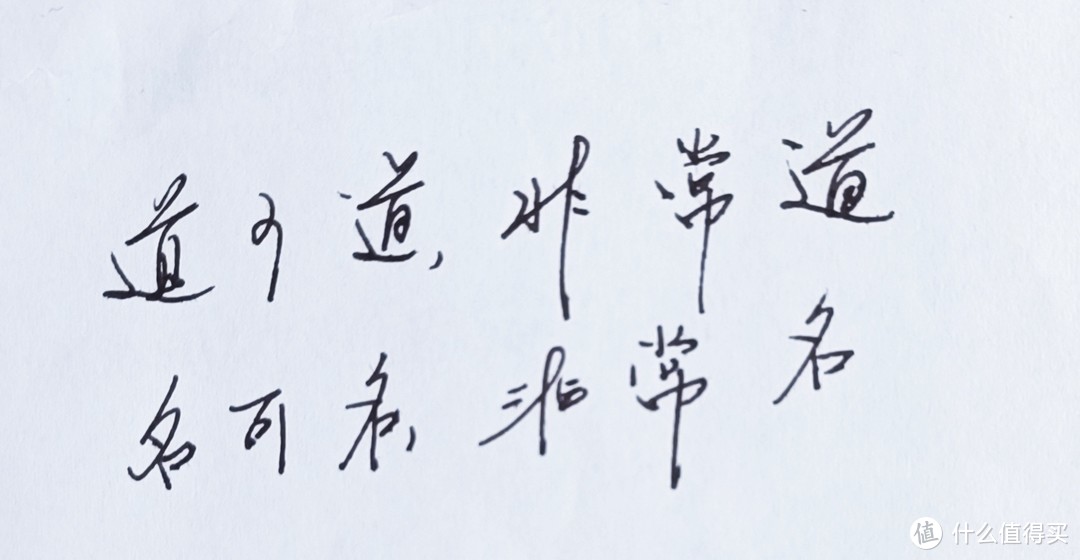 道可道,非常道
名可名,非常名
值 什么值得买